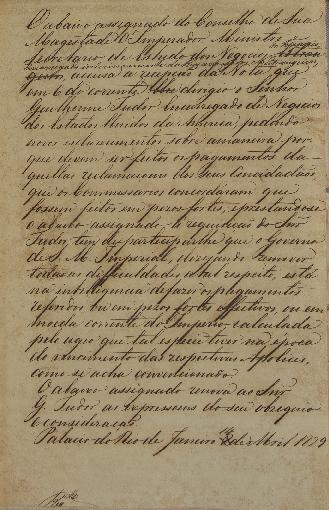 O abaixo assignado do Conselho de Sua
Magestade O Imperador Ministro
Secretario de Estado dos Negocios
accusa a recepção da Nota que
em 6 do corrente lhe dirigio o Senhor
Guilherme Tudor Encarregado de Negocios
dos Estados Unidos da America, pedindo
novos esclarecimentos sobre a maneira por
que devem ser feitos os pagamentos da-
quellas reclamaçoens dos Seus Concidadãos,
que os Commissarios concordaram que
fossem feitos em pezos fortes, e prestando-se
o abaixo assignado, á requisição do Snr
Tudor, tem de participar-lhe que o Governo
de S. M. Imperial, desejando remover
todas as difficuldades a tal respeito, está
na intelligencia de fazer os pagamentos
referidos ou em pezos fortes effectivos, ou em
moeda corrente do Imperio, calculada
pelo agio que tal especie tiver na epoca
do vencimento das respectivas Apolices,
como se acha convencionado
O abaixo assignado renova ao Snr
G. Tudor as expressoens do seu obsequio
e consideração
Palacio do Rio de Janeiro de Abril 1829